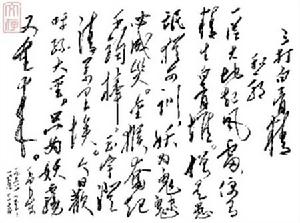 三打白骨精
一從大地起风雷便有
精生白骨堆僧是愚
氓猶可训妖为鬼蜮
必成災金猴奋起
千钧棒玉宇澄
清万里埃今日歡
呼孫大圣只为妖霧
又重来